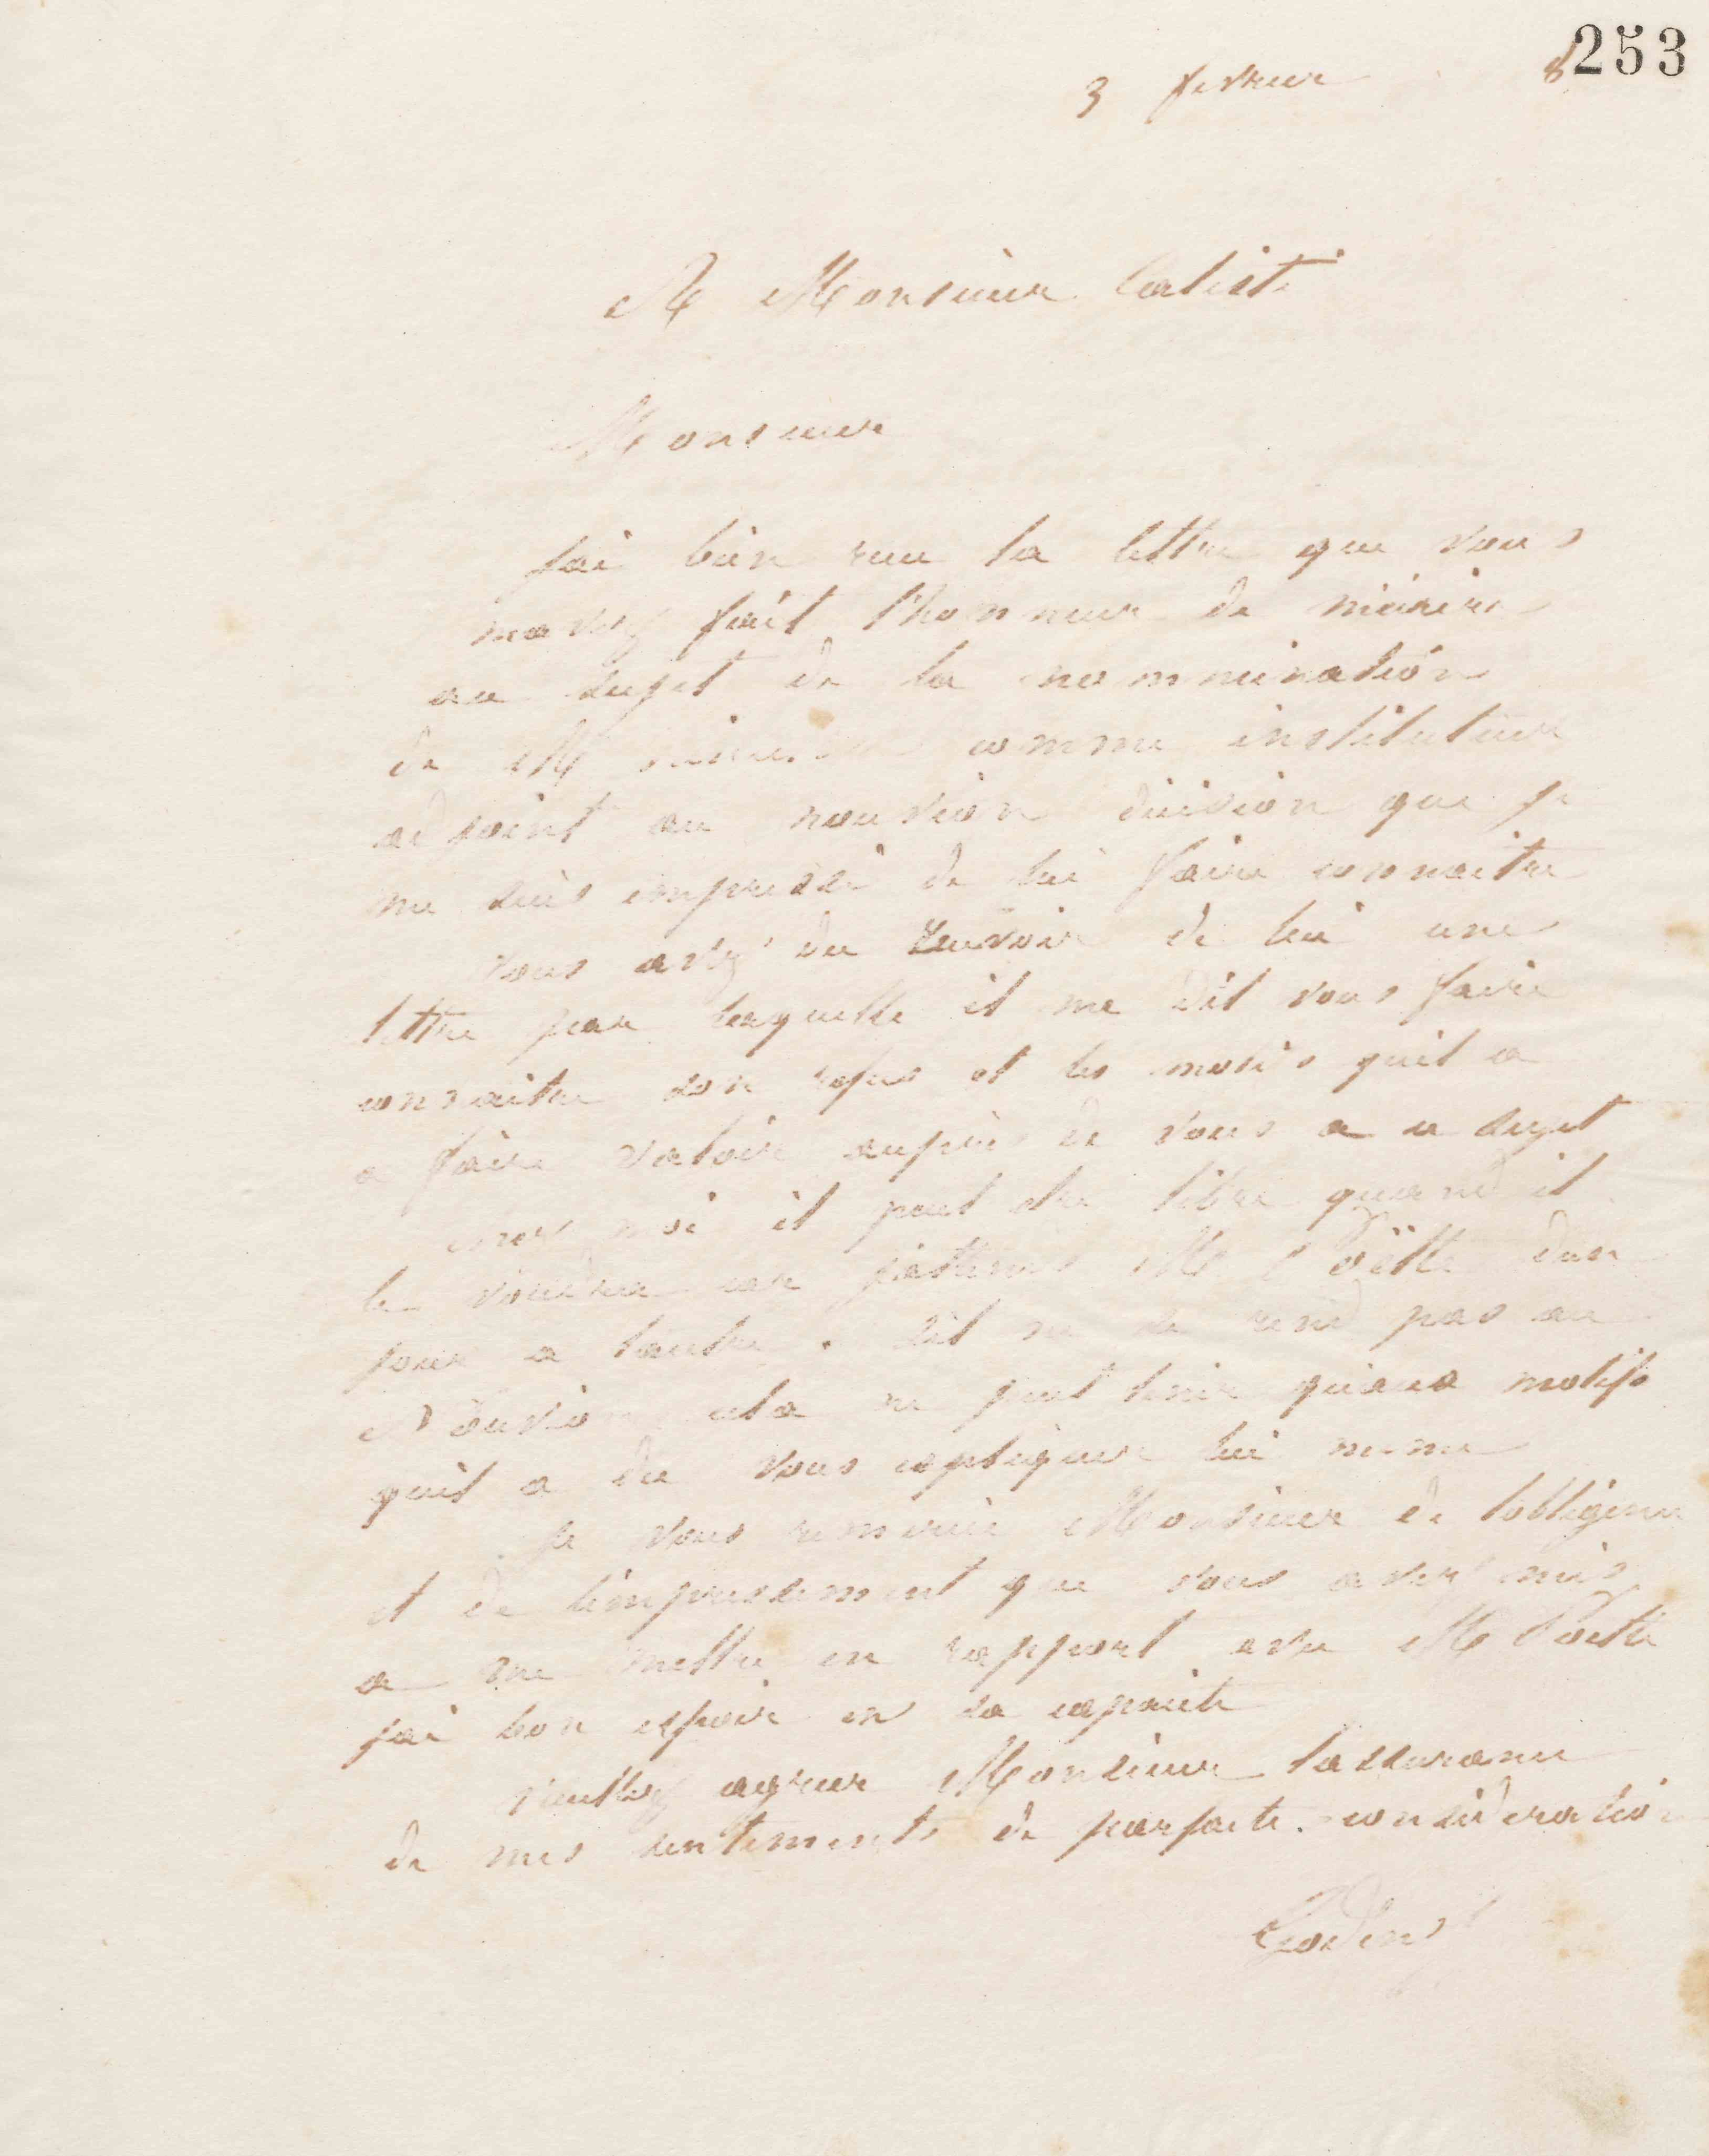 253
3 fevrier 8
A Monsieur Caliste
Monsieur
jai bien recu la lettre que vous
mavez fait l'honneur de mécrire
au sujet de la nommination
de M comme instituteur
adjoint au nouvion décision que je
me suis empressé de lui faire connaitre
vous avez du recevoir de lui une
lettre par laquelle il me dit vous faire
connaitre son refus et les motifs quil a
a faire valoir auprès de vous a ce sujet
chez moi il peut etre libre quand il
le voudra car jattends M Poëtte dun
jour a lautre . sil ne se rend pas au
Nouvion cela ne peut tenir quaux motifs
quil a du vous expliquer lui meme
je vous remercie Monsieur de lobligence
et de lempressement que vous avez mis
a me mettre en rapport avec M Poëtte
jai bon espoir en sa capacite
veuillez agreer Monsieur lassurance
de mes sentiments de parfaite consideration
Godin